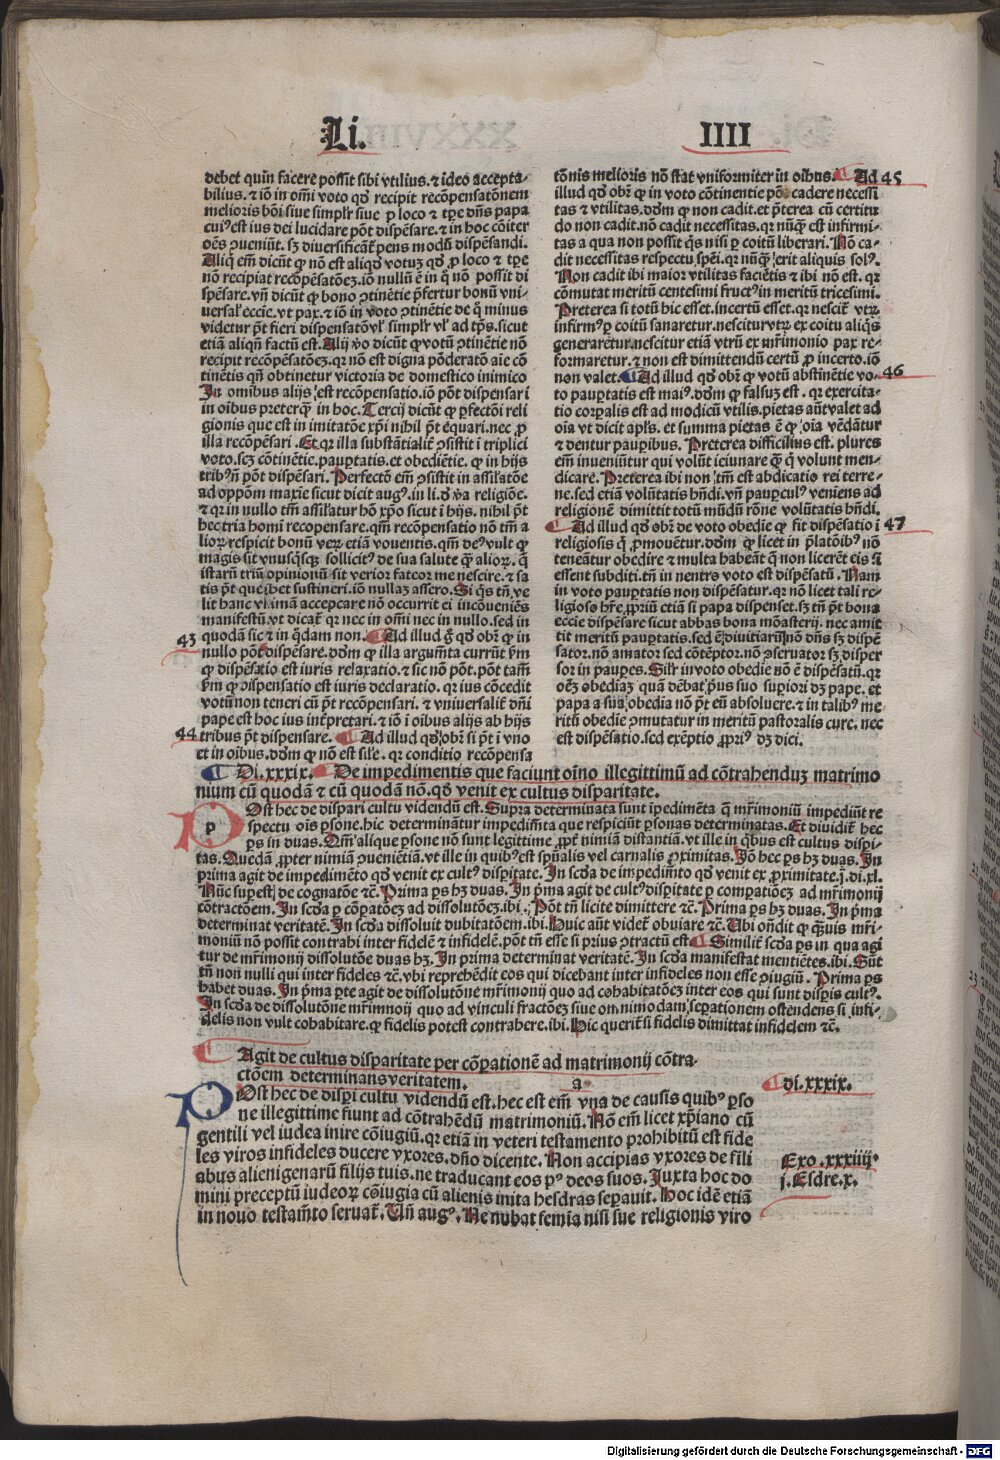 Li.
IIII
debet quin facere possit sibi vtilius. ⁊ ideo accepta-
bilius. ⁊ iō in om̄i voto qd̓ recipit recōpensatōnem
melioris bōi siue simplr̄ siue ꝑ loco ⁊ tp̄e dn̄s papa
cuiꝰ est ius dei lucidare pōt dispēsare. ⁊ in hoc cōiter
oēs ꝯueniūt. sꝫ diuersificāt̄ pens modū dispēsandi.
Aliqͥ em̄ dicūt ꝙ nō est aliqd̓ votuꝫ qd̓ ꝑ loco ⁊ tp̄e
nō recipiat recōpēsatōeꝫ. iō nullū ē in qͦ nō possit di
spēsare. vn̄ dicūt ꝙ bono ꝯtinētie p̄fertur bonū vni-
uersal̓ eccīe. vt pax. ⁊ iō in voto ꝯtinētie de qͦ minus
videtur pn̄t fieri dispensatō vl̓ simplr̄ vl̓ ad tp̄s. sicut
etiā aliqn̄ factū est. Alij v̓o dicūt ꝙ votū ꝯtinētie nō
recipit recōpēsatōeꝫ. qꝛ nō est digna pōderatō aīe cō
tinētis qn̄ obtinetur victoria de domestico inimico
In omibus alijs est recōpēsatio. iō pōt dispensari
in oibus preterqͣ in hoc. Tercij dicūt ꝙ ꝑfectōi reli
gionis que est in imitatōe xp̄i nihil pōt equari. nec ꝑ
illa recōpēsari. Et qꝛ illa substātialit̄ ꝯsistit ī triplici
voto. scꝫ cōtinētie. paupertatis. et obediētie. ꝙ in hijs
tribꝰ nō pōt dispēsari. Perfectō em̄ ꝯsistit in assilatōe
ad oppōm maxīe sicut dicit augꝰ. in li. d̓ v̓a religiōe.
⁊ qꝛ in nullo tm̄ assilatur hō xp̄o sicut ī hijs. nihil pōt
hec tria homī recopensare. qm̄ recōpensatio nō tm̄ a
lioꝝ respicit bonū veꝝ etiā vouentis. qm̄ deꝰ vult ꝙ
magis sit vnusqͥsqꝫ sollicitꝰ de sua salute qͣ alioꝝ. qͥ
istarū triū opinionū sit verior fateor me nescire. ⁊ sa
tis pōt quelibet sustineri. iō nullaꝫ assero. Si qͥs tn̄ ve
lit hanc vltimā acceptare nō occurrit ei incōueniēs
manifestū. vt dicat̄ qꝛ nec in om̄i nec in nullo. sed in
quodā sic ⁊ in qͦdam non. Ad illud g̓ qd̓ obr̄ ꝙ in
43
nullo pōt dispēsare. dōm ꝙ illa argumēta currūt p̄m
ꝙ dispēsatio est iuris relaxatio. ⁊ sic nō pōt. pōt tamē
p̄m ꝙ dispensatio est iuris declaratio. qꝛ ius cōcedit
votū non teneri cū pōt recōpensari. ⁊ vniuersalit̄ dn̄i
pape est hoc ius int̓pretari. ⁊ iō ī oibus alijs ab hijs
44
tribus pōt dispensare. Ad illud qd̓ obr̄ si pōt ī vno
et in oibus. dōm ꝙ nō est sil̓e. qꝛ conditio recōpensa
tōnis melioris nō stat vniformiter in oibus. Ad 45
illud qd̓ obr̄ ꝙ in voto cōtinentie pōt cadere necessi
tas ⁊ vtilitas. dōm ꝙ non cadit. et p̄terea cū certitu
do non cadit. nō cadit necessitas. qꝛ nūqͣ est infirmi-
tas a qua non possit qͥs nisi ꝑ coitū liberari. Nō ca-
dit necessitas respectu spēi. qꝛ nūqͣ erit aliquis solꝰ.
Non cadit ibi maior vtilitas faciētis ⁊ ibi nō est. qꝛ
cōmutat meritū centesimi fructꝰ in meritū tricesimi.
Preterea si totū hic esset. incertū esset. qꝛ nescit̄ vtꝝ
infirmꝰ ꝑ coitū sanaretur. nescitur vtꝝ ex coitu aliqͥs
generaretur. nescitur etiā vtrū ex mr̄imonio pax re-
formaretur. ⁊ non est dimittendū certū ꝑ incerto. iō
non valet. Ad illud qd̓ obr̄ ꝙ votū abstinētie vo- 46
to paupertatis est maiꝰ. dōm ꝙ falsuꝫ est. qꝛ exercita-
tio corꝑalis est ad modicū vtilis. pietas aūt valet ad
oīa vt dicit apl̓s. et summa pietas ē ꝙ oīa vēdātur
⁊ dentur pauꝑibus. Preterea difficilius est. plures
em̄ inueniūtur qui volūt ieiunare qͣ qͥ volunt men-
dicare. Preterea ibi non tm̄ est abdicatio rei terre-
ne. sed etiam volūtatis hn̄di. vn̄ pauꝑculꝰ veniens ad
religionē dimittit totū mūdū rōne volūtatis hn̄di.
Ad illud qd̓ obr̄ de voto obedīe ꝙ fit dispēsatio ī 47
religiosis qͥ ꝓmouētur. dōm ꝙ licet in p̄latōibꝰ nō
teneātur obedire ⁊ multa habeāt qͣ non licerēt eis si
essent subditi. tn̄ in neutro voto est dispēsatū. Nam
in voto paupertatis non dispēsatur. qꝛ nō licet tali re-
ligioso hr̄e ꝓpriū etiā si papa dispenset. sꝫ tn̄ pōt bona
eccīe dispēsare sicut abbas bona mōasterij. nec amit
tit meritū pauꝑtatis. sed ē diuitiarū nō dn̄s sꝫ dispē
sator. nō amator sed cōtēptor. nō ꝯseruator sꝫ disper
sor in pauꝑes. Silr̄ in voto obedīe nō ē dispēsatū. qꝛ
oēꝫ obediaꝫ quā dēbat prius suo suꝑiori dꝫ pape. et
papa a sua obedīa nō pōt eū absoluere. ⁊ in talibꝰ me
ritū obedīe ꝯmutatur in meritū pastoralis cure. nec
est dispēsatio. sed exēptio ꝓprīꝰ dꝫ dici.
Di. xxxix. De impedimentis que faciunt oīno illegittimū ad cōtrahenduꝫ matrimo
nium cū quodā ⁊ cū quodā nō. qd̓ venit ex cultus disparitate.
p
Ost hec de dispari cultu videndū est. Supra determinata sunt īpedimēta qͣ mr̄imoniū impediūt re
spectu oīs ꝑsone. hic determinātur impedimēta que respiciūt ꝑsonas determinatas. Et diuidit̄ hec
ꝑs in duas. Qm̄ alique ꝑsone nō sunt legittime ꝓpt̄ nimiā distantiā. vt ille in qͥbus est cultus dispi-
tas. Quedā ꝓpter nimiā ꝯueniētiā. vt ille in quibꝰ est spūalis vel carnalis ꝓximitas. Iō hec ꝑs hꝫ duas. In
prima agit de impedimēto qd̓ venit ex cultꝰ disꝑitate. In scd̓a de impedimēto qd̓ venit ex ꝓximitate. j. di. xl.
Nūc suꝑest de cognatōe ⁊c̄. Prima ꝑs hꝫ duas. In p̄ma agit de cultꝰ disꝑitate ꝑ compatiōeꝫ ad mr̄imonij
cōtractōem. In scd̓a ꝑ cōpatōeꝫ ad dissolutōeꝫ. ibi. Pōt tn̄ licite dimittere ⁊c̄. Prima ꝑs hꝫ duas. In p̄ma
determinat veritatē. In scd̓a dissoluit dubitatōem. ibi. Huic aūt videt̄ obuiare ⁊c̄. Ubi on̄dit ꝙ qͣuis mr̄i-
moniū nō possit contrahi inter fidelē ⁊ infidelē. pōt tn̄ esse si prius ꝯtractū est. Similit̄ scd̓a ꝑs in qua agi
tur de mr̄imonij dissolutōe duas hꝫ. In prima determinat veritatē. In scd̓a manifestat mentiētes. ibi. Sūt
tn̄ non nulli qui inter fideles ⁊c̄. vbi reprehēdit eos qui dicebant inter infideles non esse ꝯiugiū. Prima ꝑs
habet duas. In p̄ma ꝑte agit de dissolutōne mr̄imonij quo ad cohabitatōeꝫ inter eos qui sunt disꝑis cultꝰ.
In scd̓a de dissolutōne mr̄imonij quo ad vinculi fractōeꝫ siue omnimodam seꝑationem ostendens si infi-
delis non vult cohabitare. ꝙ fidelis potest contrahere. ibi. Hic querit̄ si fidelis dimittat infidelem ⁊c̄.
Agit de cultus disparitate per cōpationē ad matrimonij cōtra-
ctōem determinans veritatem. a
di. xxxix.
POst hec de disꝑi cultu videndū est. hec est em̄ vna de causis quibꝰ ꝑso
ne illegittime fiunt ad cōtrahēdū matrimoniū. Nō em̄ licet xp̄iano cū
gentili vel iudea inire cōiugiū. qꝛ etiā in veteri testamento prohibitū est fide
les viros infideles ducere vxores. dn̄o dicente. Non accipias vxores de fili
Exo. xxxiiij.
abus alienigenarū filijs tuis. ne traducant eos pꝰ deos suos. Juxta hoc do
j. Esdre. x.
mini preceptū iudeoꝝ cōiugia cū alienis inita hesdras seꝑauit. Hoc idē etiā
in nouo testamēto seruat̄. Un̄ augꝰ. Ne nubat femīa nisi sue religionis viro
Digitalisierung gefördert durch die Deutsche Forschungsgemeinschaft - DFG